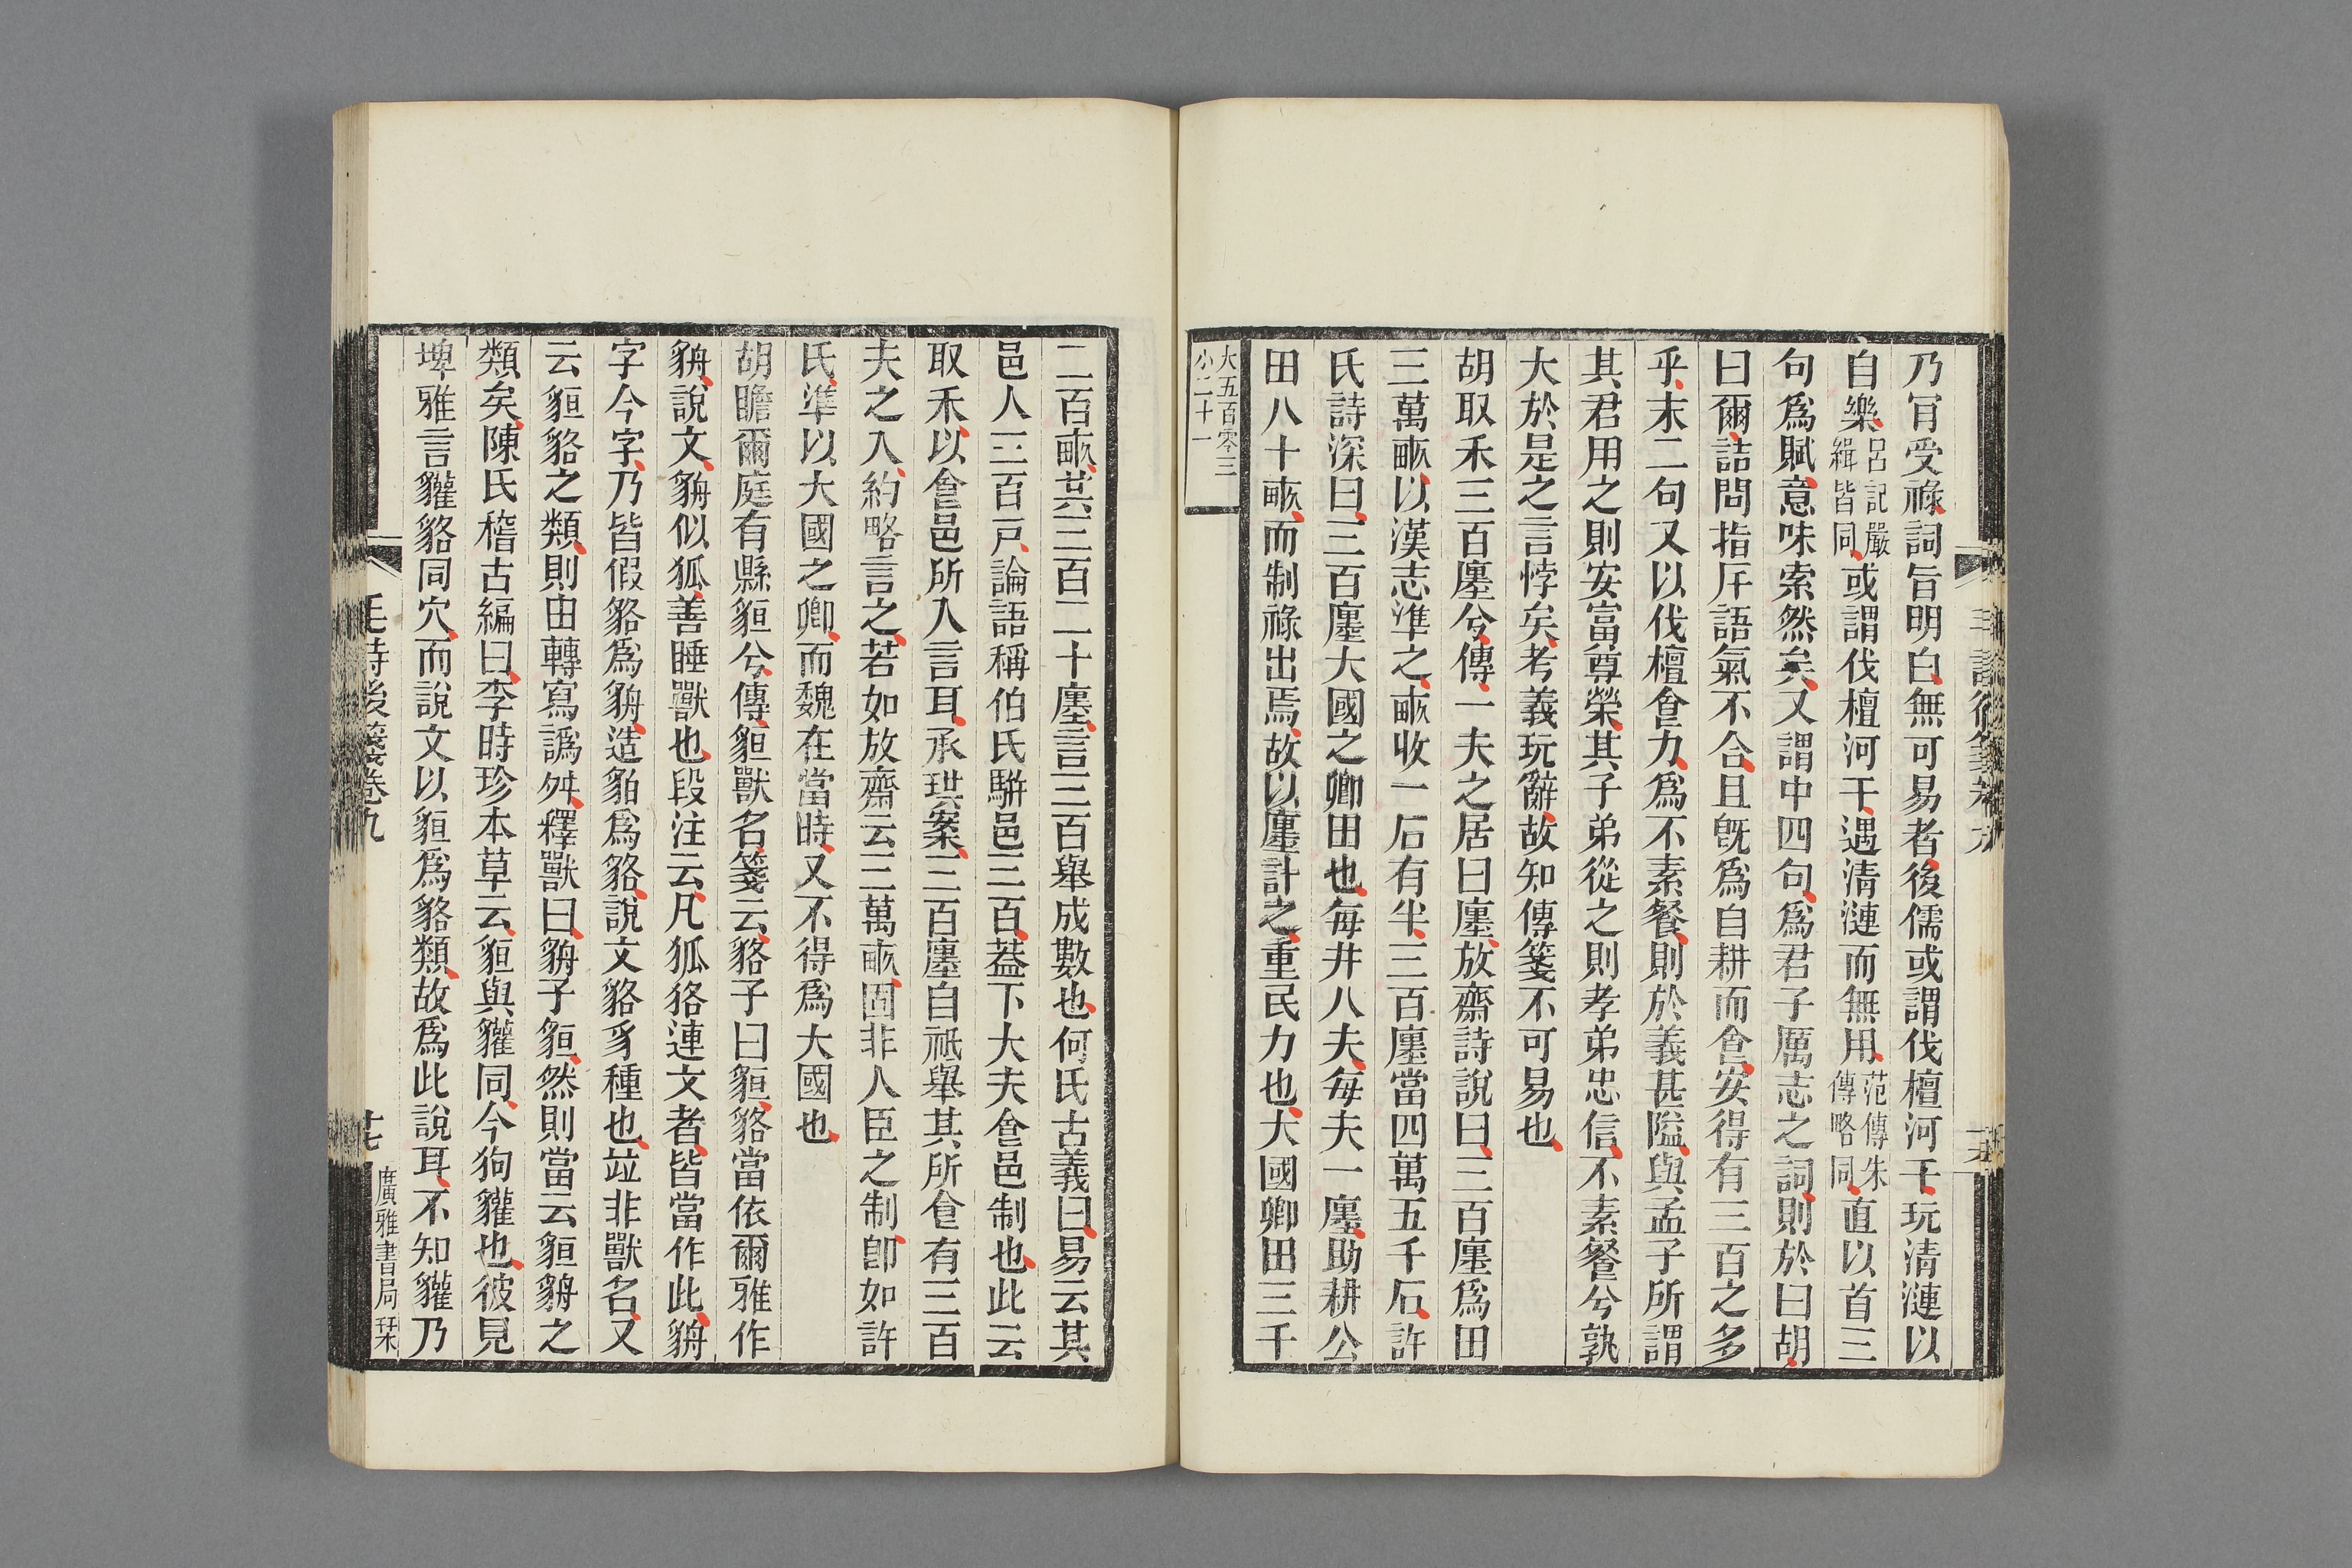 乃肎受祿詞旨明白無可易者後儒或謂伐檀河干玩清漣以
自樂呂記嚴緝皆同或謂伐檀河干遇清漣而無用范傳朱傳略同直以首三
句爲賦意味索然矣又謂中四句爲君子厲志之詞則於曰胡
曰爾詰問指斥語氣不合且旣爲自耕而食安得有三百之多
乎末二句又以伐檀食力爲不素餐則於義甚隘與孟子所謂
其君用之則安富尊榮其子弟從之則孝弟忠信不素餐兮孰
大於是之言悖矣考義玩辭故知傳箋不可易也
胡取禾三百廛兮傳一夫之居曰廛放齋詩說曰三百廛爲田
三萬畞以漢志準之畞收一石有半三百廛當四萬五千石許
氏詩深曰三百廛大國之卿田也每井八夫每夫一廛助耕公
田八十畞而制祿出焉故以廛計之重民力也大國卿田三千
大五百零三
小二十一
二百畞共三百二十廛言三百舉成數也何氏古義曰易云其
邑人三百戸論語稱伯氏騈邑三百葢下大夫食邑制也此云
取禾以食邑所入言耳承珙案三百廛自祇舉其所食有三百
夫之入約略言之若如放齋云三萬畞固非人臣之制卽如許
氏準以大國之卿而魏在當時又不得爲大國也
胡瞻爾庭有縣貆兮傳貆獸名箋云貉子曰貆貉當依爾雅作
貈說文貈似狐善睡獸也段注云凡狐狢連文者皆當作此貈
字今字乃皆假貉爲貈造貊爲貉說文貉豸種也竝非獸名又
云貆貉之類則由轉寫譌舛釋獸曰貈子貆然則當云貆貈之
類矣陳氏稽古編曰李時珍本草云貆與貛同今狗貛也彼見
埤雅言貛貉同穴而說文以貆爲貉類故爲此說耳不知貛乃
毛詩後箋卷九
十七
廣雅書局栞